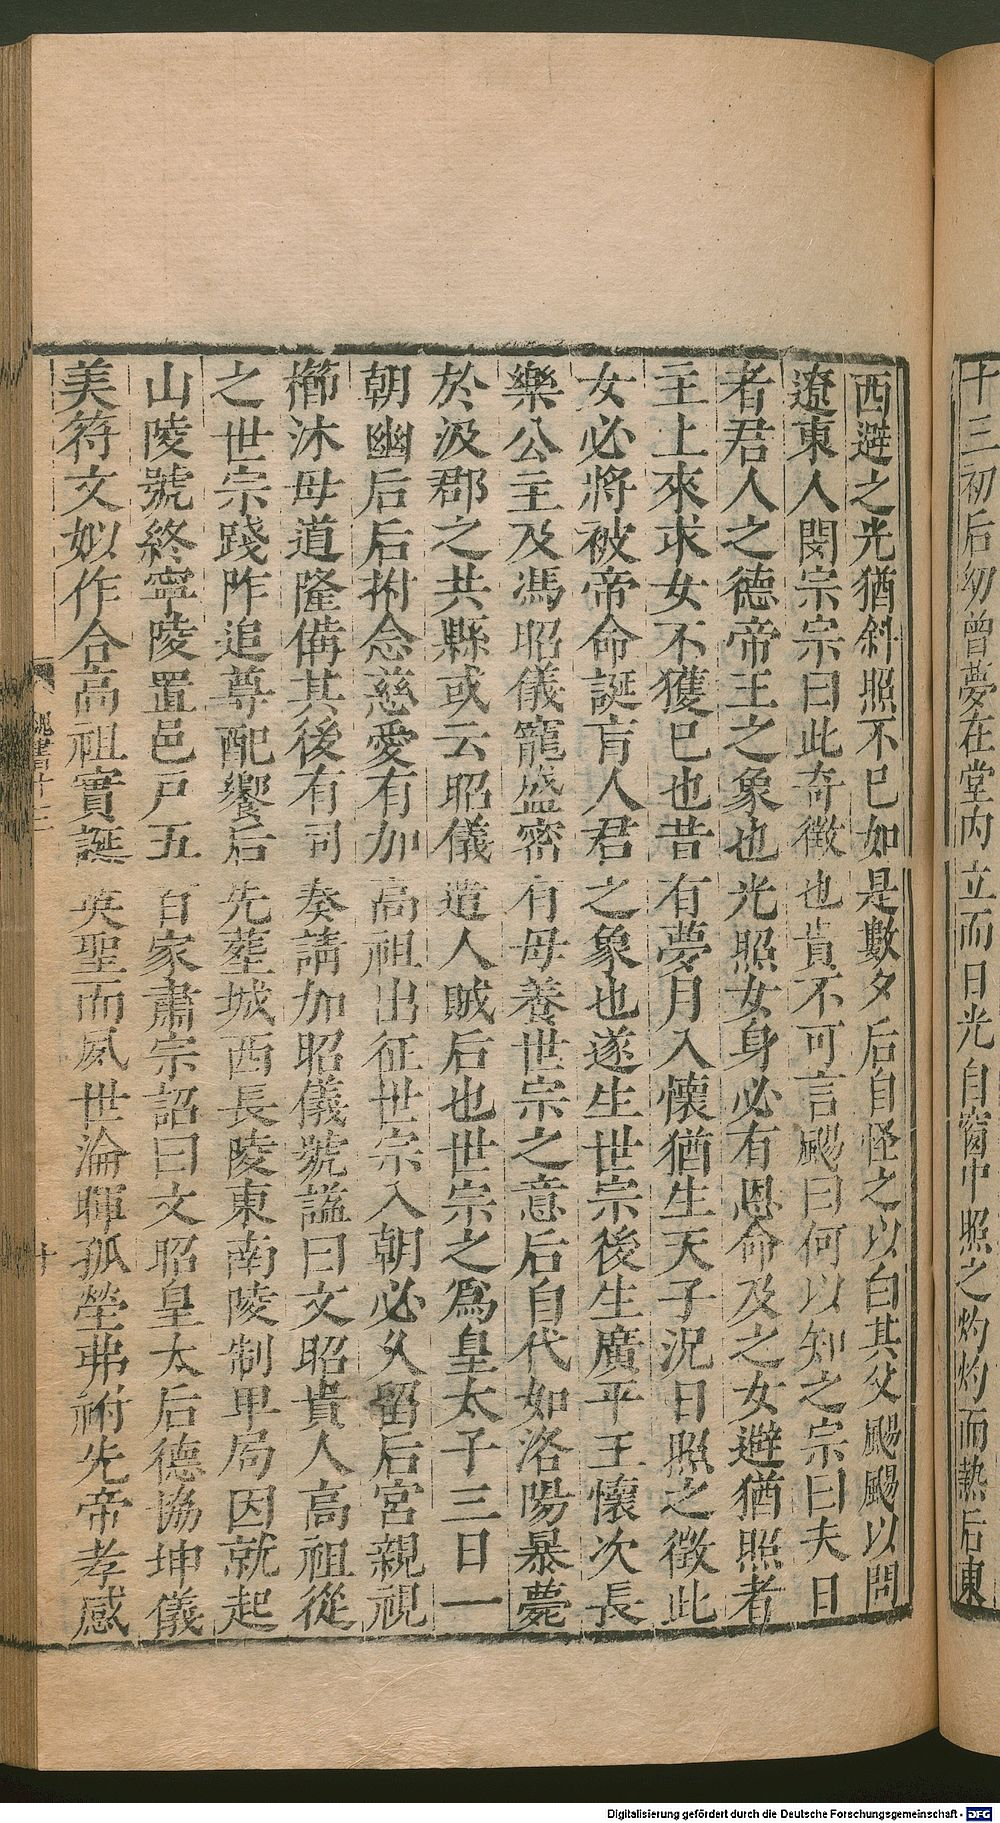 十三初后幼曾夢在堂內立而日光自窗中照之灼灼而熱后東
西避之光猶斜照不已如是數夕后自怪之以白其父颺颺以問
遼東人閔宗宗曰此奇徵也貴不可言颺曰何以知之宗曰夫日
者君人之德帝王之象也光照女身必有恩命及之女避猶照者
主上來求女不獲已也昔有夢月入懷猶生天子況日照之徵此
女必將被帝命誕育人君之象也遂生世宗後生廣平王懷次長
樂公主及馮昭儀寵盛密有母養世宗之意后自代如洛陽暴薨
於汲郡之共縣或云昭儀遣人賊后也世宗之為皇太子三日一
朝幽后后拊念慈愛有加高祖出征世宗入朝必久留后宮親視
櫛沐母道隆備其後有司奏請加昭儀號謚曰文昭貴人高祖從
之世宗踐阼追尊配饗后先塟城西長陵東南陵制卑局因就起
山陵號終寧陵置邑戶五百家肅宗詔曰文昭皇太后德協坤儀
美符文姒作合高祖實誕英聖而夙世淪暉孤塋弗祔先帝孝感
魏書十三
十
Digitalisierung gefördert durch die Deutsche Forschungsgemeinschaft - DFG